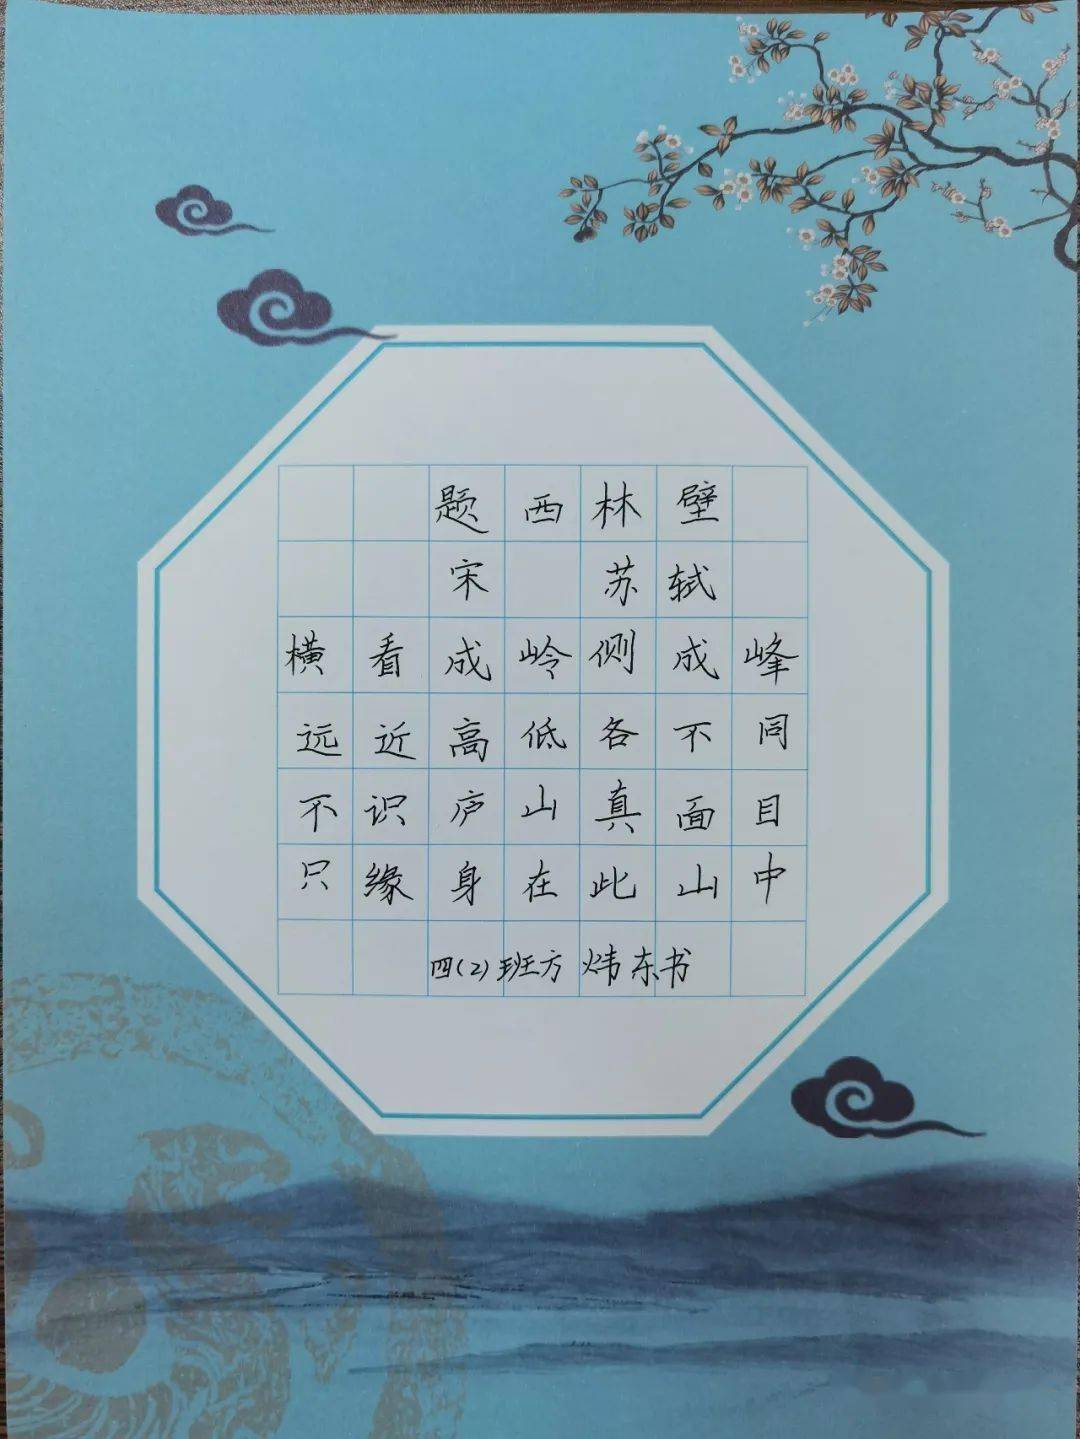 题西林壁
宋 苏轼
横看成岭侧成峰
远近高低各不同
不识庐山真面目
只缘身在此山中
四(2)班方炜东书